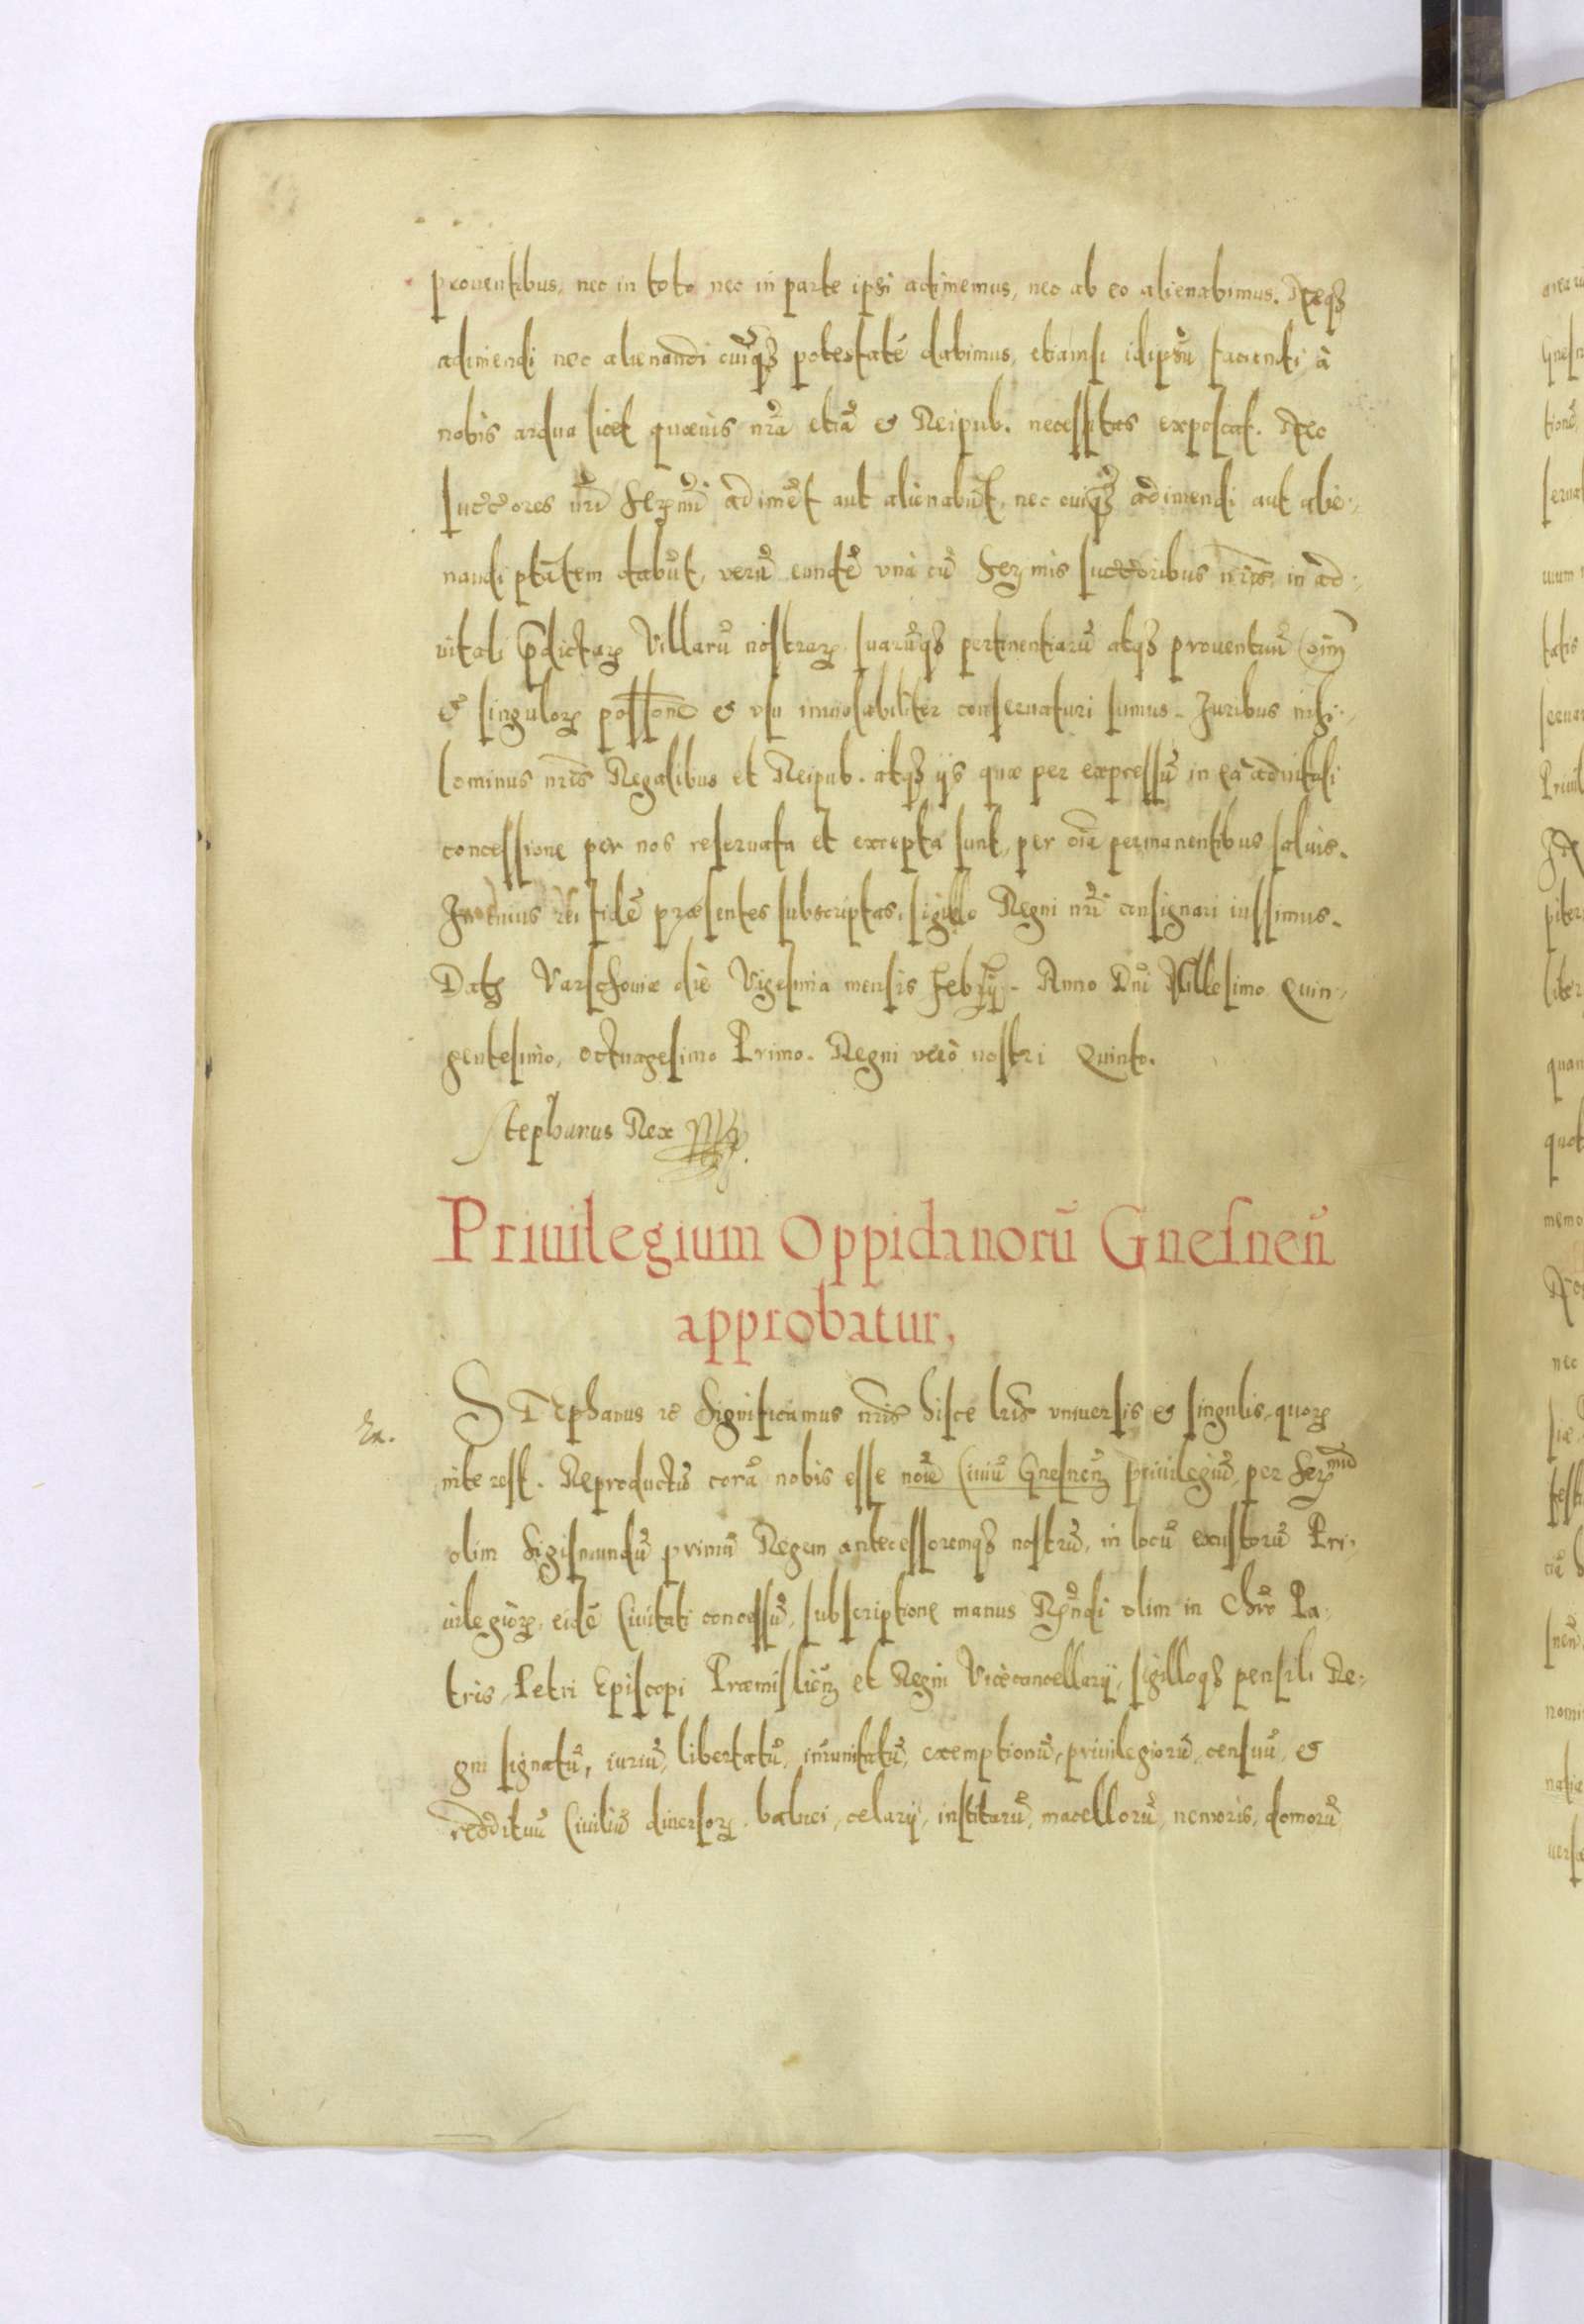 prouentibus, nec in toto nec in parte ipsi adimemus, nec ab eo alienabimus. Neqȝ
adimendi nec alienandi cuiqȝ potestatē dabimus, etiamsi idipsū faciendi à
nobis ardua licet quæuis nr̄a etiā & Reipub. necessitas exposcat. Nec
succ̄ores nr̄i Serm̄i adimēt aut alienabūt, nec cuiqȝ adimendi aut alie-
nandi ptātem dabūt, verū eundē vnà cū Serm̄is succ̄oribus nr̄is, in ad-
uitali p̄dictarꝝ Villarū nostrarꝝ, suarūqȝ pertinentiarū atqȝ prouentuū oīm
& singulorꝝ poss̄one & vsu inuiolabiliter conseruaturi sumus. Juribus nihi-
lominus nr̄is Regalibus et Reipub. atqȝ ijs quæ per expressū in ea aduitali
concessione per nos reseruata et excepta sunt, per oīa permanentibus saluis.
In cuius rei fidē præsentes subscriptas, sigillo Regni nr̄i consignari iussimus.
Datȝ Varschouiæ die Vigesima mensis Febrij. Anno Dnī Millesimo Quin-
gentesimo, octuagesimo Primo. Regni verò nostri Quinto.
Stephanus Rex
Priuilegium Oppidanorū Gnesneñ
approbatur,
STephanus &c Significamus nr̄is hisce lr̄is vniuersis & singulis, quorꝝ
interest. Reproductū corā nobis esse noīe Ciuiū Gnesneñ priuilegiū, per Serm̄ū
olim Sigismundū primū Regem antecessoremqȝ nostrū, in locū exustorū Pri-
uilegiorꝝ, eidē Ciuitati concessū, subscriptione manus Rn̄di olim in Chr̄o Pa-
tris, Petri Episcopi Præmislieñ et Regni Vicecancellarij, sigilloqȝ pensili Re-
gni signatū, iuriū, libertatū, im̄unitatū, exemptionū, priuilegiorū, censuū, &
reddituū Ciuiliū diuersorꝝ, balnei, celarij, institarū, macellorū, nemoris, domorū